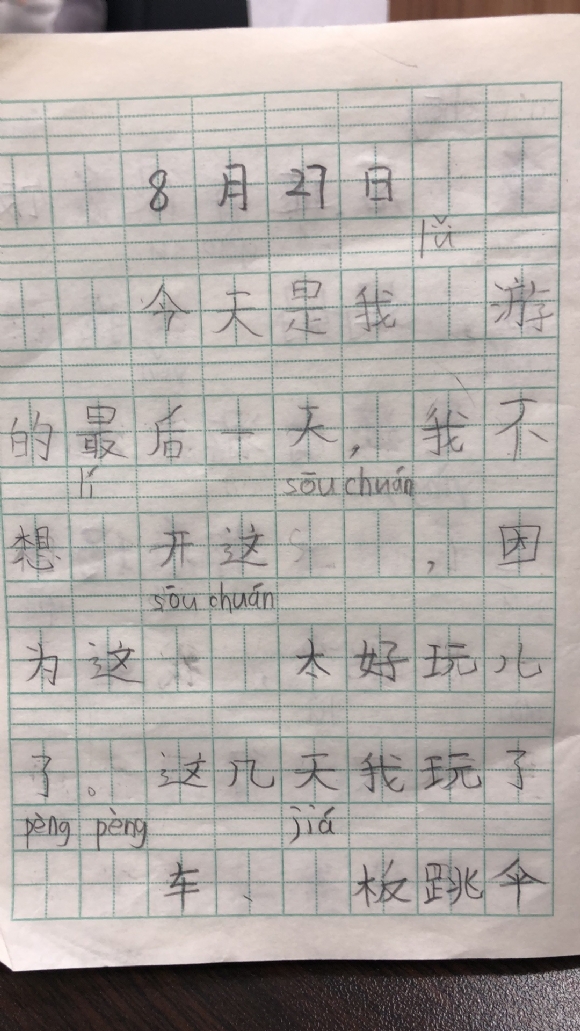 8月27日
lǚ
今天是我 游
的最后一天，我不
lí sōu chuán
想 开这 ，因
sōu chuán
为这 太好玩儿
了。这几天我玩了
pèng pèng jiá
车、 板跳伞